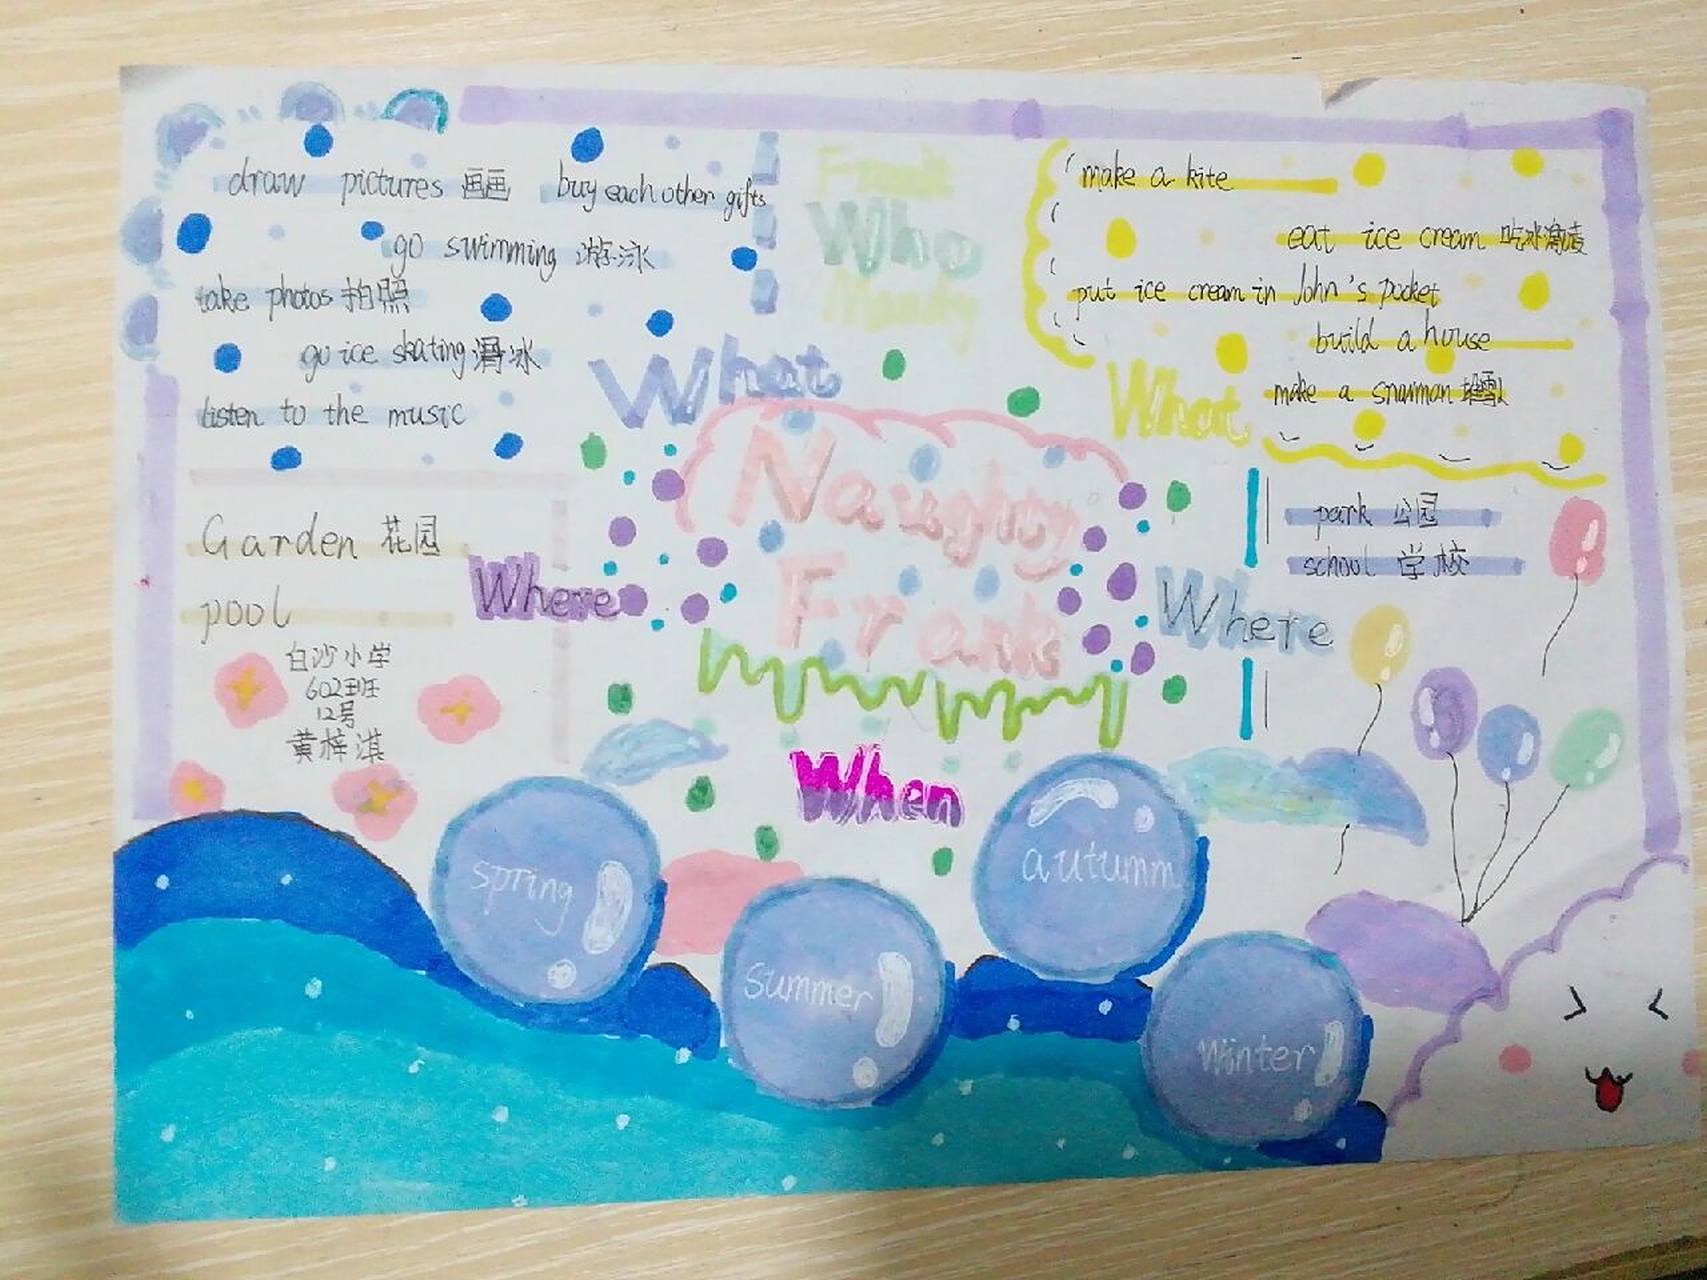 draw pictures 画画 buy each other gifts
go swimming 游泳
take photos 拍照
go ice skating 滑冰
listen to the music
What
Frank
Who
Mandy
make a kite
eat ice cream 吃冰淇凌
put ice cream in John's pocket
build a house
make a snowman 堆雪人
What
Naughty
Frank
Garden 花园
pool
Where
白沙小学
602班
12号
黄梓淇
park 公园
school 学校
Where
When
spring
summer
autumm
Winter